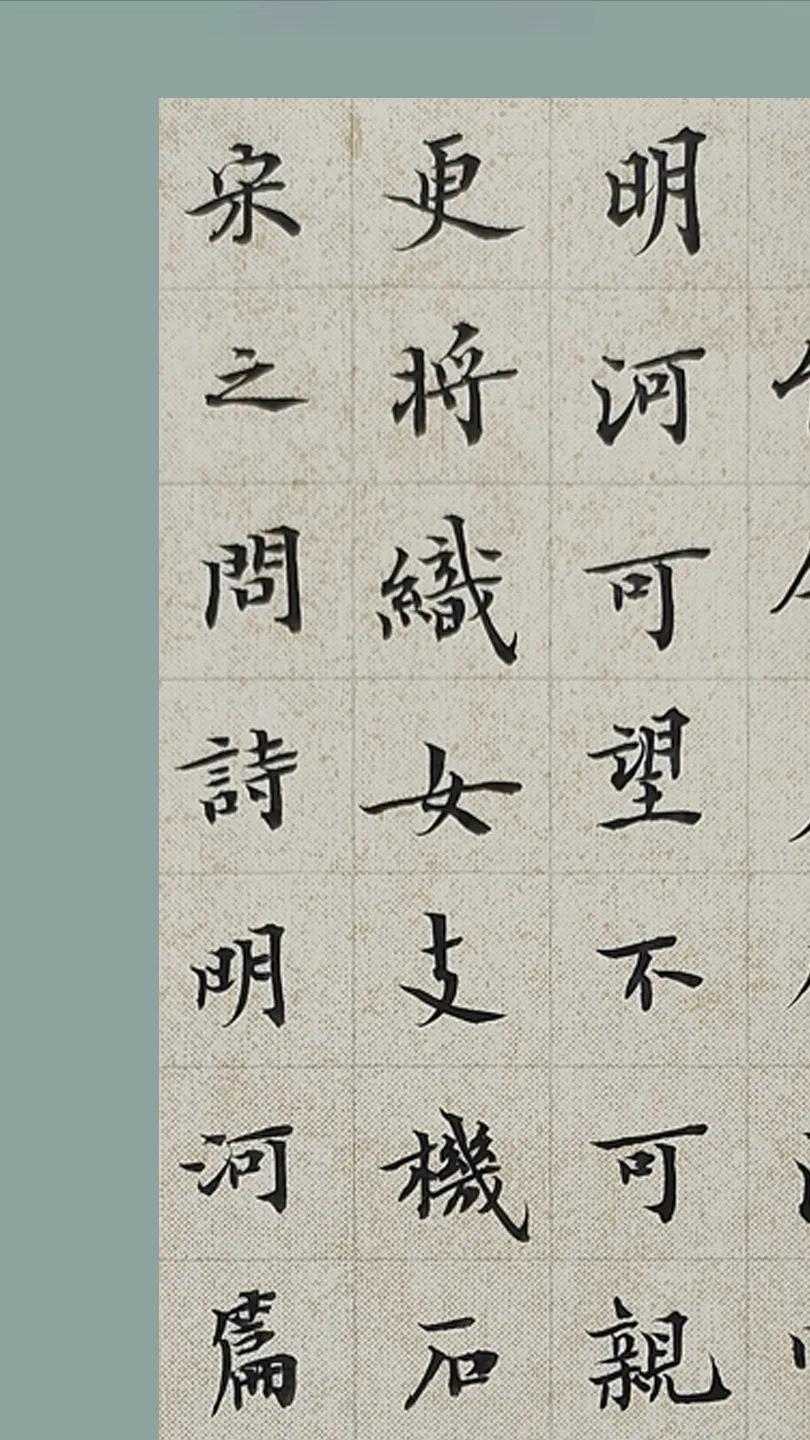 明河可望不可親
更将織女支機石
宋之問詩明河篇